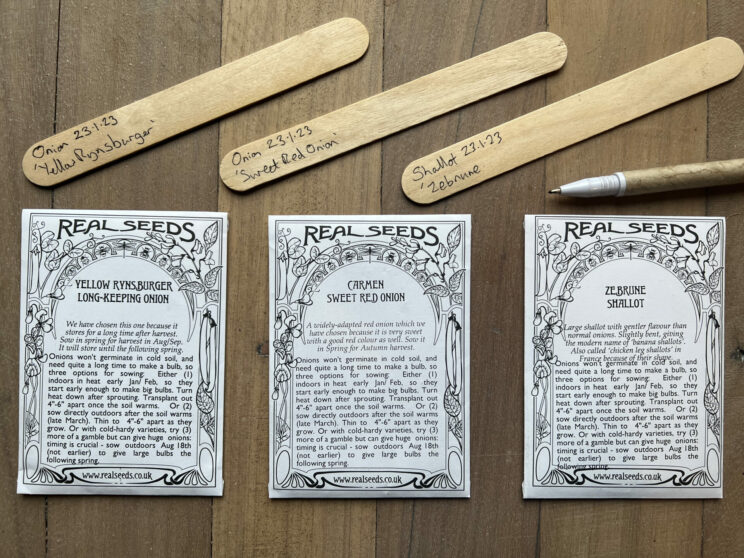 Onion 23.1.23
'Yellow Rynsburger'
Onion 23.1.23
'Sweet Red Onion'
Shallot 23.1.23
'Zebrune
REAL SEEDS
YELLOW RYNSBURGER
LONG-KEEPING ONION
We have chosen this one because it
stores for a long time after harvest.
Sow in spring for harvest in Aug/Sep.
It will store until the following spring.
Onions won't germinate in cold soil, and
need quite a long time to make a bulb, so
three options for sowing: Either (1)
indoors in heat early Jan/ Feb, so they
start early enough to make big bulbs. Turn
heat down after sprouting. Transplant out
4"-6" apart once the soil warms. Or (2)
sow directly outdoors after the soil warms
(late March). Thin to 4"-6" apart as they
grow. Or with cold-hardy varieties, try (3)
more of a gamble but can give huge onions:
timing is crucial - sow outdoors Aug 18th
(not earlier) to give large bulbs the
following spring.
www.realseeds.co.uk
REAL SEEDS
CARMEN
SWEET RED ONION
A widely-adapted red onion which we
have chosen because it is very sweet
with a good red colour as well. Sow it
in Spring for Autumn harvest.
Onions won't germinate in cold soil, and
need quite a long time to make a bulb, so
three options for sowing: Either (1)
indoors in heat early Jan/ Feb, so they
start early enough to make big bulbs. Turn
heat down after sprouting. Transplant out
4"-6" apart once the soil warms. Or (2)
sow directly outdoors after the soil warms
(late March). Thin to 4"-6" apart as they
grow. Or with cold-hardy varieties, try (3)
more of a gamble but can give huge onions:
timing is crucial - sow outdoors Aug 18th
(not earlier) to give large bulbs the
following spring.
www.realseeds.co.uk
REAL SEEDS
ZEBRUNE
SHALLOT
Large shallot with gentler flavour than
normal onions. Slightly bent, giving
the modern name of 'banana shallots'.
Also called 'chicken leg shallots' in
France because of their shape.
Onions won't germinate in cold soil, and
need quite a long time to make a bulb, so
three options for sowing: Either (1)
indoors in heat early Jan/ Feb, so they
start early enough to make big bulbs. Turn
heat down after sprouting. Transplant out
4"-6" apart once the soil warms. Or (2)
sow directly outdoors after the soil warms
(late March). Thin to 4"-6" apart as they
grow. Or with cold-hardy varieties, try (3)
more of a gamble but can give huge onions:
timing is crucial - sow outdoors Aug 18th
(not earlier) to give large bulbs the
following spring.
www.realseeds.co.uk